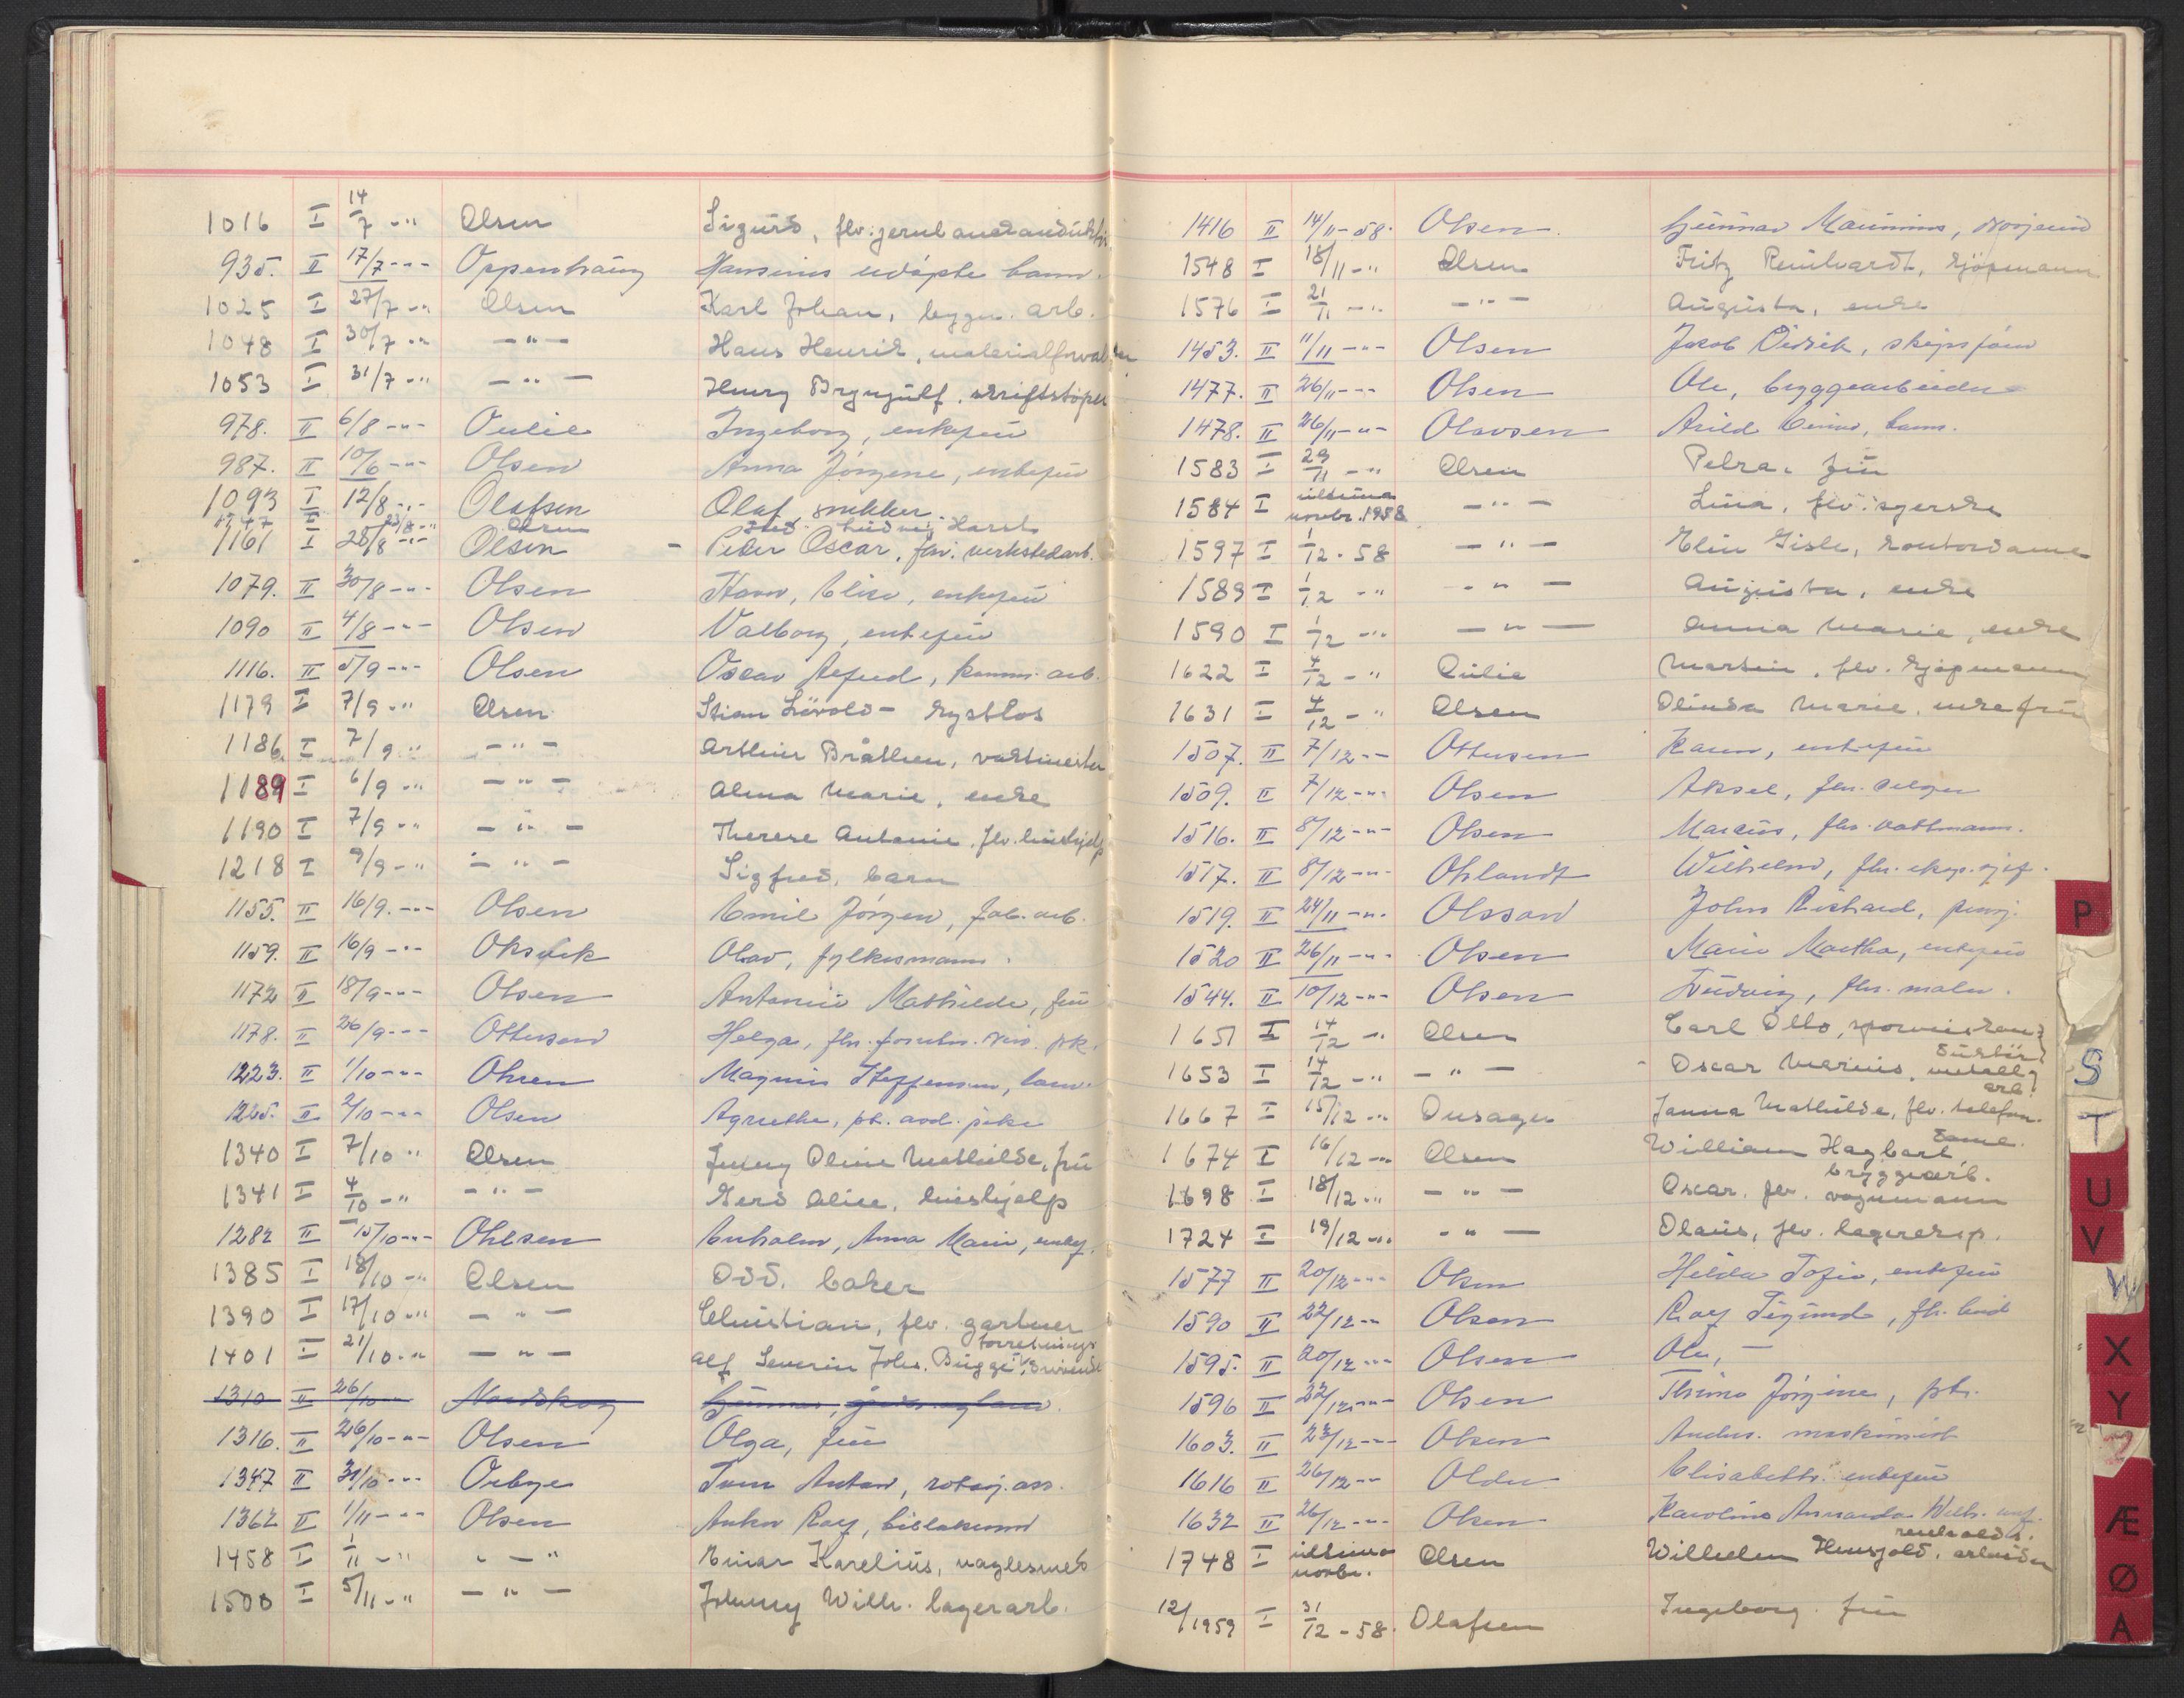 1016 I 14/7 -"- Olsen Sigurd, flv. jernbanekonduktør
935. II 17/7 -"- Oppenhaug Hansines udøpte barn.
1025 I 27/7 -"- Olsen Karl Johan, bygn. arb.
1048 I 30/7 -"- -"- Hans Henrik, materialforvalter
1053 I 31/7 -"- -"- Henry Brynjulf, skriftstøper
978. II 6/8 -"- Oulie Ingeborg, enkefru
987. II 10/6 -"- Olsen Anna Jørgine, enkefru
1093 I 12/8 -"- Olafsen Olaf, snekker.
1147 I 23/8 -"- Olsen Ludvig Harst
1161 I 28/8 -"- Olsen - Peder Oscar, flv. verkstedarb.
1079. II 30/8 -"- Olsen Karen, Elise, enkefru
1090 II 4/8 -"- Olsen Valborg, enkefru
1116. II 5/9 -"- Olsen Oscar, komm. arb.
1179 I 7/9 -"- Olsen Stian Løvold - kystlos
1186 I 7/9 -"- -"- Arthur Bråthen, vaktmester
1189 I 6/9 -"- -"- Alma Marie, enke
1190 I 7/9 -"- -"- Therese Antonie, flv. hushjelp
1218 I 9/9 -"- -"- Sigfred, barn
1155. II 16/9. -"- Olsen Emil Jørgen, fab. arb.
1159. II 16/9 -"- Oksvik Olav, fylkesmann.
1172 II 18/9 -"- Olsen Antonie Mathilde, fru
1178. II 26/9 -"- Ottesen Helga, flv.
1223. II 1/10 -"- Ohren Magnus Steffensen,
II 2/10 -"- Olsen Agnethe, pk.
1340 I 7/10 " Olsen Jenny Oline Mathilde, fru
1341 I 4/10 -" -"- Gerd Alice, hushjelp
1282 II 15/10 -"- Ohlsen Anna Marie, enkef.
1385 I 18/10 -" Olsen Odd. baker
1390 I 17/10 -"- -"- Christian, flv. gartner
1401 I 21/10 -"- -"- Alf Severin Johs. Bugge, forretningsdrivende
1310 II 26/10 -"- Nordskog Gunnar,
1316. II 26/10 -"- Olsen Olga, fru
1347 II 31/10 -"- Orbye Tom Anton,
1362 II 1/11 -"- Olsen Anker Rolf,
1458 I 1/11 -" -"- Einar Karelius, naglesmed
1500 I 5/11 -" -"- Johnny Wilh. lagerarb.
1416 II 14/11 -58. Olsen. Gunnar Maurinus,
1548 I 18/11 -" Olsen Fritz Reinhardt, kjøpmann
1576 I 21/11 -" -"- Augusta, enke
1453. II 11/11 -"- Olsen Jacob Didrik,
1477. II 26/11 -"- Olsen Ole, bryggearbeider
1478. II 26/11 -"- Olavsen Arild
1583 I 29/11 -" Olsen Petra. fru
1584 I ultimo novbr. 1958 -"- Lina, flv. syerske
1597 I 1/12 - 58 -"- Elin Gisle, kontordame
1589 I 1/12 -" -"- Augusta, enke
1590 I 1/12 -" -"- Anna Marie, enke
1622 I 4/12 -" Oulie Martin, flv. kjøpmann
1631 I 4/12 -" Olsen Olinda Marie, enkefru
1507. II 7/12 -"- Ottesen Karen, enkefru
1509. II 7/12 -"- Olsen Aksel, flv. selger
1516. II 8/12 -"- Olsen Marius, flv. vaktmann.
1517. II 8/12 -"- Ohlandt Wilhelm, flv. eksp. sjef.
1519. II 24/11 -"- Olsson John Richard, pensj.
1520 II 26/11 -"- Olsen Marie Martha, enkefru
1544. II 10/12 -"- Olsen Ludvig, flv. maler.
1651 I 14/12 -" Olsen Carl Otto, sporveiskonduktør
1653 I 14/12 -" -"- Oscar Marius, metallarb.
1667 I 15/12 -" Onsager Janna Mathilde, flv. telefondame.
1674 I 16/12 -" Olsen William Hagbart bryggearb.
1698 I 18/12 -" -"- Oscar. flv. vognmann
1724 I 19/12 -" -"- Olaus, flv. lagereksp.
1577 II 20/12 -"- Olsen Hilda Sofie, enkefru
1590 II 22/12 -" Olsen Rolf Sigurd,
1595. II 20/12 -"- Olsen Ole, -
1596 II 22/12 -"- Olsen Jørgine, pk.
1603. II 23/12 -"- Olsen Anders. maskinist
1616 II 26/12 -" Olden Elisabeth. enkefru
1632 II 26/12 -"- Olsen Karoline Amanda Wilh. enf.
1748 I ultimo novbr. Olsen Wilhelm Hersjold, renholdsarbeider
12/1959 I 31/12 - 58. Olafsen Ingeborg. fru
P
S
T
U
V
W
X
Y
Æ
Ø
A